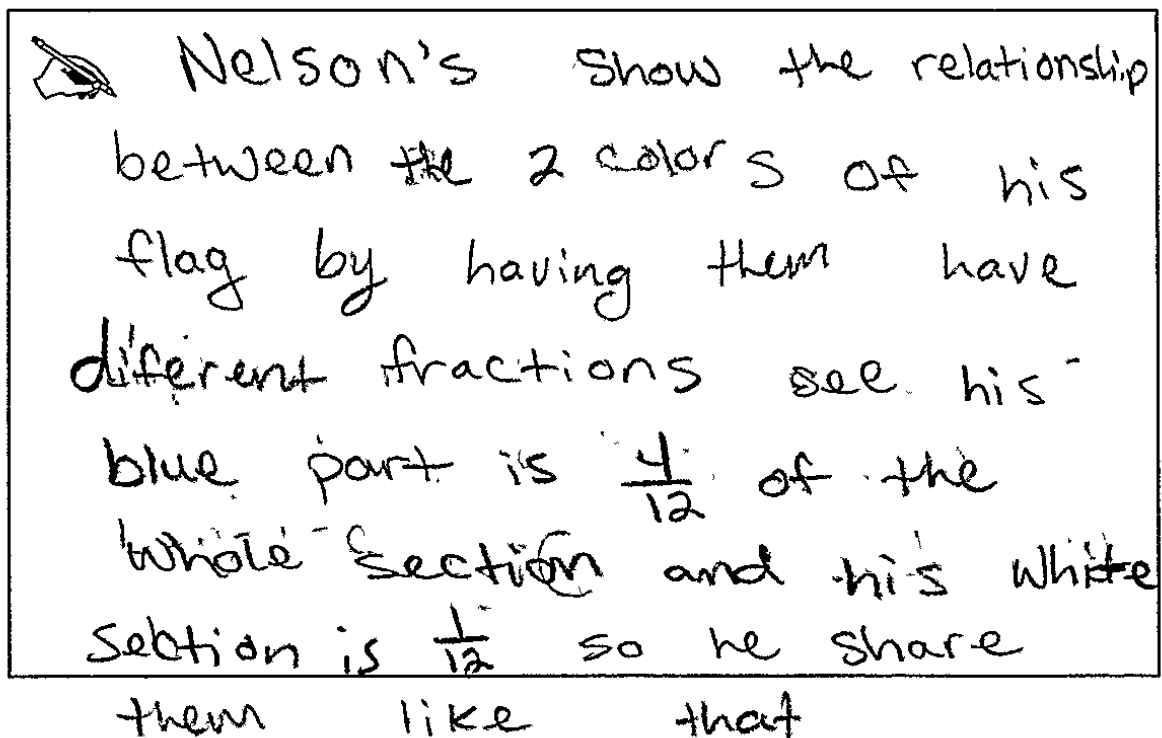 Nelson's show the relationship
between the 2 colors of his
flag by having them have
diferent fractions see his
blue part is 4/12 of the
whole section and his white
section is 1/12 so he share
them like that